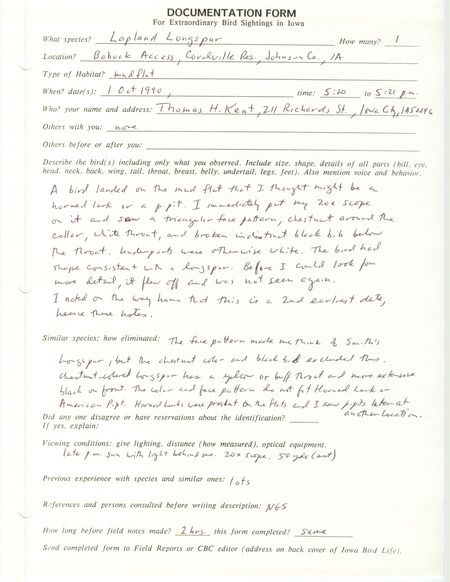 DOCUMENTATION FORM
For Extraordinary Bird Sightings in Iowa
What species? Lapland Longspur How many? 1
Location? Babcock Access, Coralville Res., Johnson Co., IA
Type of Habitat? mudflat
When? date(s): 1 Oct 1990, time: 5:20 to 5:21 p.m.
Who? your name and address: Thomas H. Kent, 211 Richards St., Iowa City, IA 52246
Others with you: none
Others before or after you:
Describe the bird(s) including only what you observed. Include size, shape, details of all parts (bill, eye,
head, neck, back, wing, tail, throat, breast, belly, undertail, legs, feet). Also mention voice and behavior.
A bird landed on the mud flat that I thought might be a
horned lark or a pipit. I immediately put my 20x scope
on it and saw a triangular face pattern, chestnut around the
collar, white throat, and broken indistinct black bib below
the throat. Underparts were otherwise white. The bird had
shape consistent with a longspur. Before I could look for
more detail, it flew off and was not seen again.
I noted on the way home that this is a 2nd earliest date,
hence these notes.
Similar species; how eliminated: The face pattern made me think of Smith's
Longspur, but the chestnut color and black bib excluded this.
Chestnut-colored Longspur has a yellow or buff throat and more extensive
black on front. The color and face pattern do not fit Horned Lark or
American Pipit. Horned Larks were present on the flats and I saw pipits later at
another location.
Did any one disagree or have reservations about the identification?
If yes, explain:
Viewing conditions: give lighting, distance (how measured), optical equipment.
late p.m. sun with light behind me. 20x scope. 50 yds (est)
Previous experience with species and similar ones: lots
References and persons consulted before writing description: NGS
How long before field notes made? 2 hrs. this form completed? same
Send completed form to Field Reports or CBC editor (address on back cover of Iowa Bird Life).